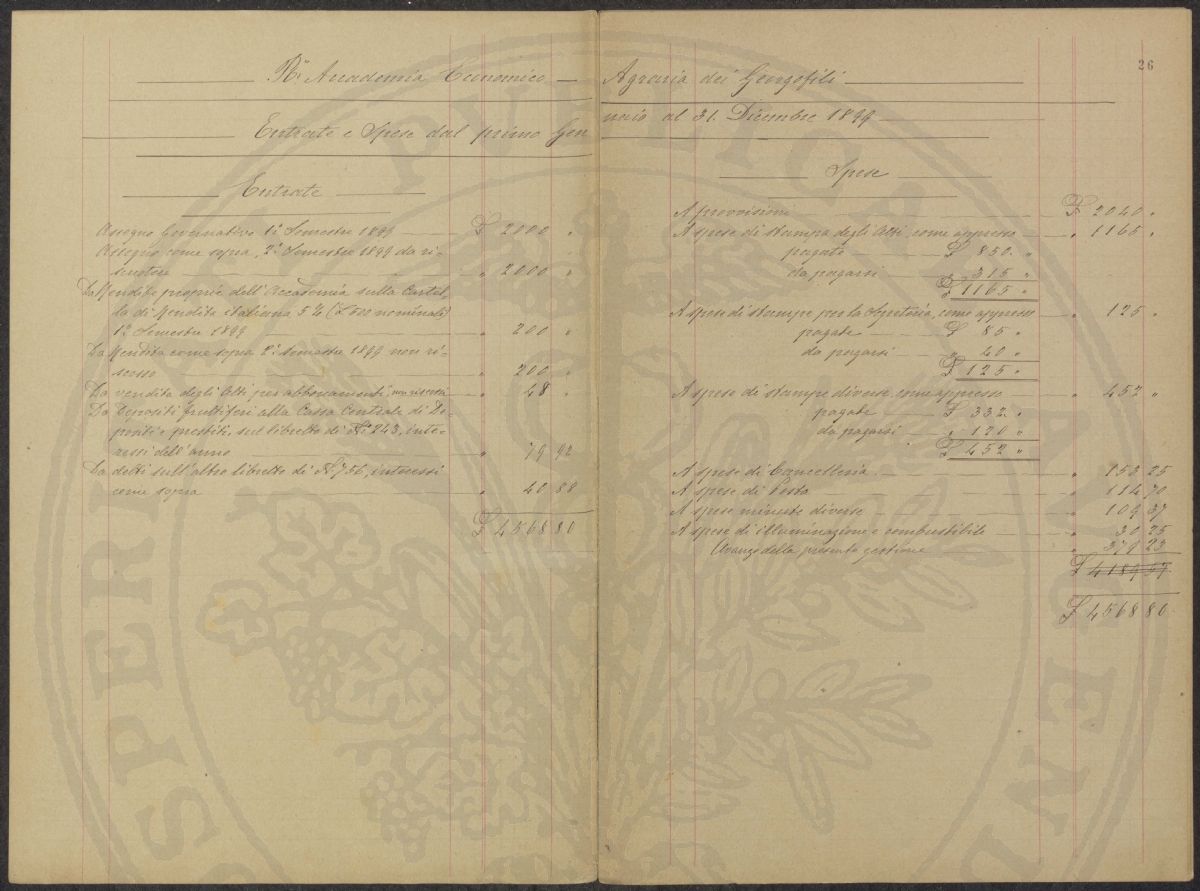 26
Rle Accademia Economico — Agraria dei Georgofili
Entrate e Spese dal primo Gennaio al 31. Dicembre 1899
Entrate
Assegno Governativo 1º Semestre 1899 £ 2000 "
Assegno come sopra, 2º Semestre 1899 da ri-
scuotere " 2000 "
Da Rendite proprie dell'Accademia sulla Cartel-
la di Rendita italiana 5% (£ 500 nominali)
1º Semestre 1899 " 200 "
Da Rendita come sopra 2º semestre 1899 non ri-
scosso " 200 "
Da vendita degli Atti per abbonamenti, non riscossa " 48 "
Da Depositi fruttiferi alla Cassa Centrale di De-
positi e prestiti, sul libretto di Nº 243, inte-
ressi dell'anno " 79 92
Da detti sull'altro libretto di Nº 756, interessi
come sopra " 40 88
£ 4568 80
Spese
A provvisioni £ 2040 "
A spese di stampa degli Atti, come appresso " 1165 "
pagate £ 850. "
da pagarsi " 315 "
£ 1165 "
A spese di stampe per la Segreteria, come appresso " 125 "
pagate £ 85 "
da pagarsi " 40 "
£ 125 "
A spese di stampe diverse, come appresso " 452 "
pagate £ 332. "
da pagarsi " 120 "
£ 452 "
A spese di Cancelleria " 153 25
A spese di Posta " 114 70
A spese minute diverse " 109 37
A spese di illuminazione e combustibile " 30 25
Avanzo della presente gestione " 379 23
£ 4189 57
£ 4568 80
PVBLICAE